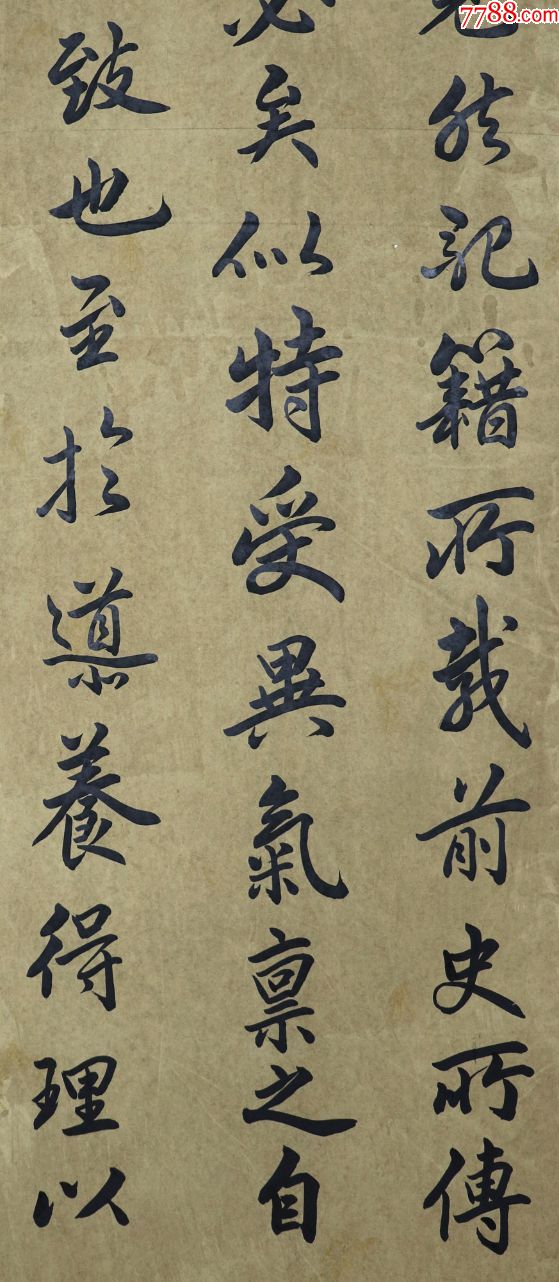 7788.com
然記籍所載前史所傳
必矣似特受異氣稟之自
致也至於導養得理以